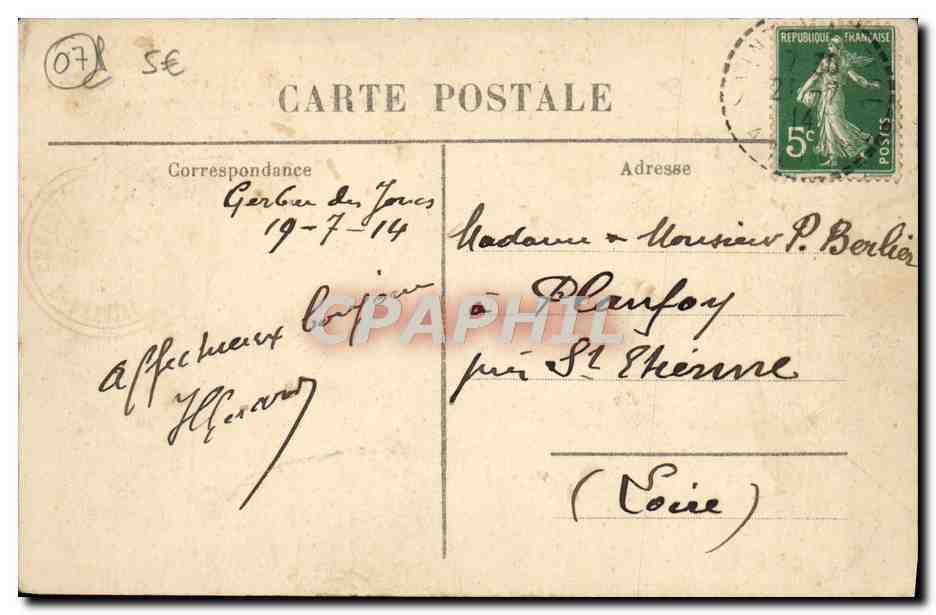 07 5€
CARTE POSTALE
REPUBLIQUE FRANÇAISE
5c
POSTES
Correspondance
Adresse
Gerbier des Joncs
19-7-14
Affectueux bonjour
HGerard
Madame & Monsieur P. Berlier
à Planfoy
près St Etienne
(Loire)
CPAPHIL